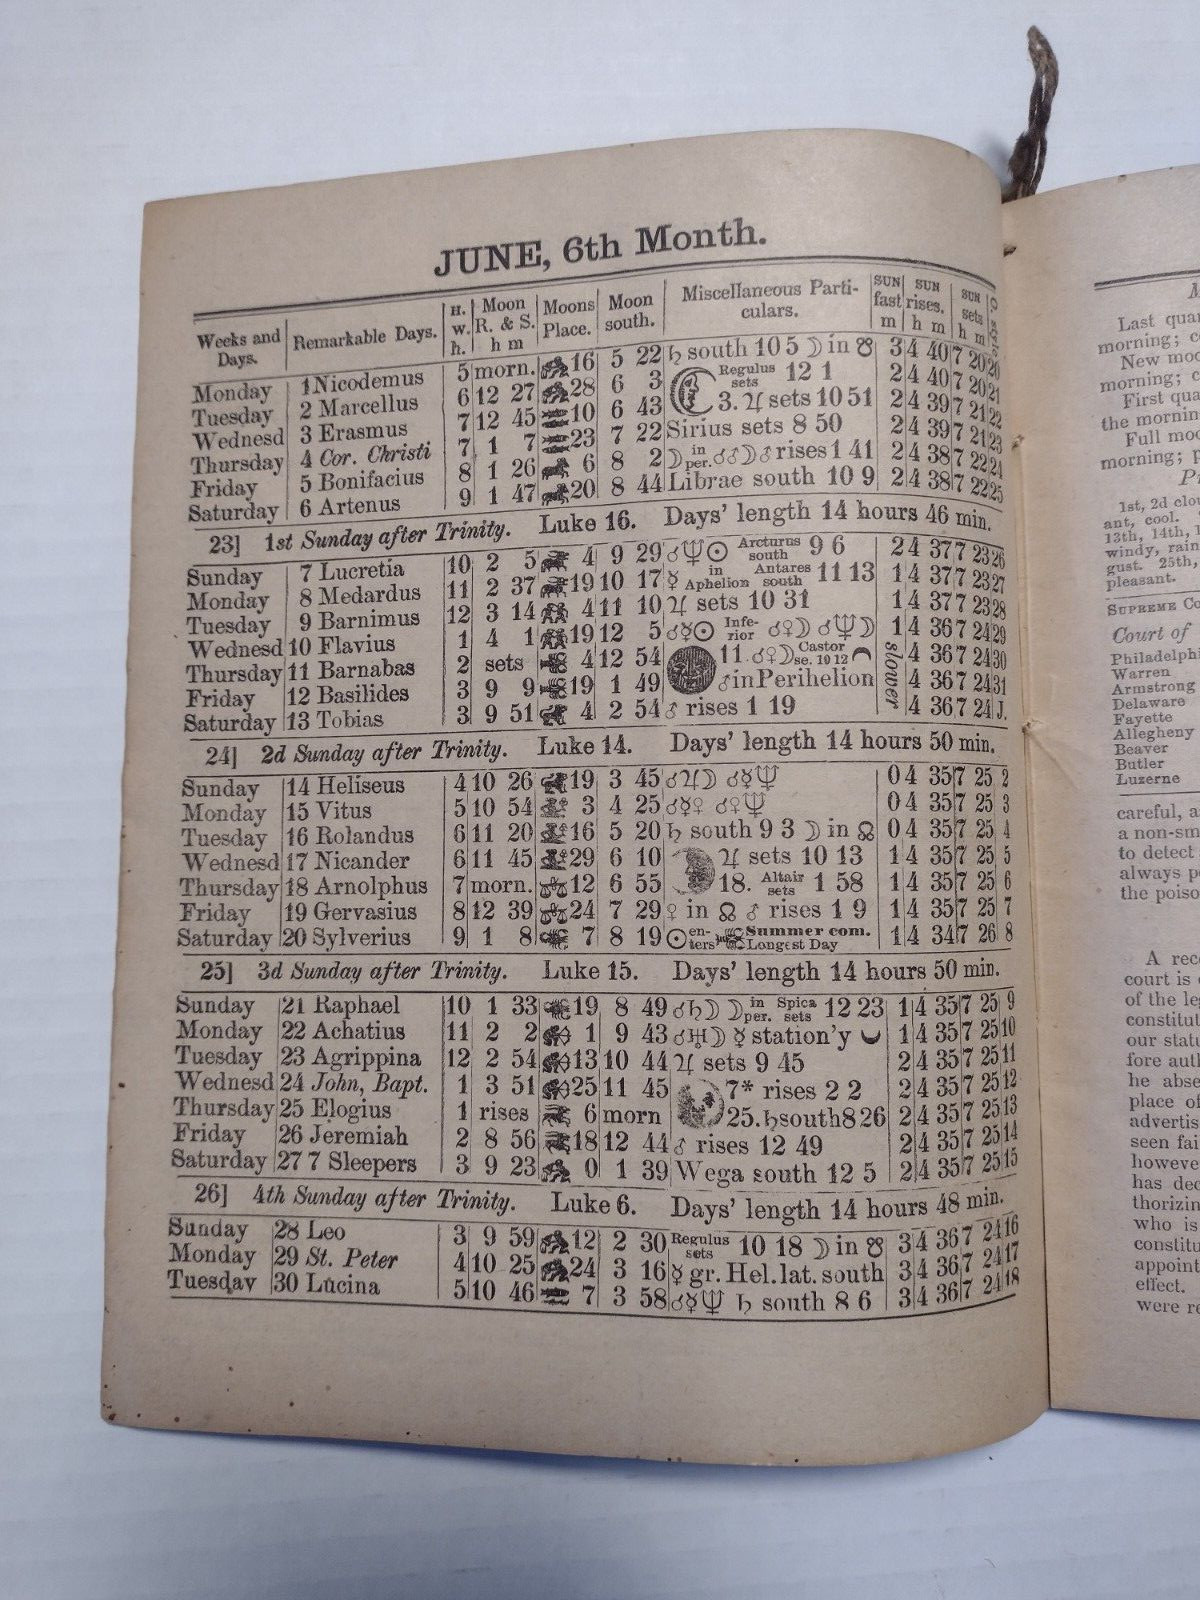 JUNE, 6th Month.
Weeks and Days. Remarkable Days. H. w. h. Moon R. & S. h m Moons Place. Moon south. Miscellaneous Particulars. SUN fast m SUN rises. h m SUN sets h m
Monday 1 Nicodemus 5 morn. 16 5 22 ♄ south 10 5 ☽ in ☋ 3 4 40 7 20 20
Tuesday 2 Marcellus 6 12 27 28 6 3 Regulus sets 12 1 2 4 40 7 20 21
Wednesd 3 Erasmus 7 12 45 10 6 43 3. ♃ sets 10 51 2 4 39 7 21 22
Thursday 4 Cor. Christi 7 1 7 23 7 22 Sirius sets 8 50 2 4 39 7 21 23
Friday 5 Bonifacius 8 1 26 6 8 2 ☽ in per. ☌♂☽ ♂ rises 1 41 2 4 38 7 22 24
Saturday 6 Artenus 9 1 47 20 8 44 Librae south 10 9 2 4 38 7 22 25
23] 1st Sunday after Trinity. Luke 16. Days' length 14 hours 46 min.
Sunday 7 Lucretia 10 2 5 4 9 29 ☌♆☉ Arcturus south 9 6 2 4 37 7 23 26
Monday 8 Medardus 11 2 37 19 10 17 ☿ in Aphelion Antares south 11 13 1 4 37 7 23 27
Tuesday 9 Barnimus 12 3 14 4 11 10 ♃ sets 10 31 1 4 37 7 23 28
Wednesd 10 Flavius 1 4 1 19 12 5 ☌☿☉ Inferior ☌♀☽ ☌♆☽ 1 4 36 7 24 29
Thursday 11 Barnabas 2 sets 4 12 54 11. ☌♀☽ Castor se. 10 12 slower 4 36 7 24 30
Friday 12 Basilides 3 9 9 19 1 49 ♂ in Perihelion 4 36 7 24 31
Saturday 13 Tobias 3 9 51 4 2 54 ♂ rises 1 19 4 36 7 24 J.
24] 2d Sunday after Trinity. Luke 14. Days' length 14 hours 50 min.
Sunday 14 Heliseus 4 10 26 19 3 45 ☌♃☽ ☌☿♆ 0 4 35 7 25 2
Monday 15 Vitus 5 10 54 3 4 25 ☌☿♀ ☌♀♆ 0 4 35 7 25 3
Tuesday 16 Rolandus 6 11 20 16 5 20 ♄ south 9 3 ☽ in ☊ 0 4 35 7 25 4
Wednesd 17 Nicander 6 11 45 29 6 10 ♃ sets 10 13 1 4 35 7 25 5
Thursday 18 Arnolphus 7 morn. 12 6 55 18. Altair sets 1 58 1 4 35 7 25 6
Friday 19 Gervasius 8 12 39 24 7 29 ♀ in ☊ ♂ rises 1 9 1 4 35 7 25 7
Saturday 20 Sylverius 9 1 8 7 8 19 ☉ enters Summer com. Longest Day 1 4 34 7 26 8
25] 3d Sunday after Trinity. Luke 15. Days' length 14 hours 50 min.
Sunday 21 Raphael 10 1 33 19 8 49 ☌♄☽ ☽ in per. Spica sets 12 23 1 4 35 7 25 9
Monday 22 Achatius 11 2 2 1 9 43 ☌♅☽ ☿ station'y 1 4 35 7 25 10
Tuesday 23 Agrippina 12 2 54 13 10 44 ♃ sets 9 45 2 4 35 7 25 11
Wednesd 24 John, Bapt. 1 3 51 25 11 45 7* rises 2 2 2 4 35 7 25 12
Thursday 25 Elogius 1 rises 6 morn 25. ♄ south 8 26 2 4 35 7 25 13
Friday 26 Jeremiah 2 8 56 18 12 44 ♂ rises 12 49 2 4 35 7 25 14
Saturday 27 7 Sleepers 3 9 23 0 1 39 Wega south 12 5 2 4 35 7 25 15
26] 4th Sunday after Trinity. Luke 6. Days' length 14 hours 48 min.
Sunday 28 Leo 3 9 59 12 2 30 Regulus sets 10 18 ☽ in ☋ 3 4 36 7 24 16
Monday 29 St. Peter 4 10 25 24 3 16 ☿ gr. Hel. lat. south 3 4 36 7 24 17
Tuesday 30 Lucina 5 10 46 7 3 58 ☌☿♆ ♄ south 8 6 3 4 36 7 24 18
Last quar
morning; c
New moo
morning; c
First qua
the mornin
Full moo
morning; p
1st, 2d clou
ant, cool.
13th, 14th,
windy, rain
gust. 25th,
pleasant.
SUPREME Co
Court of
Philadelphi
Warren
Armstrong
Delaware
Fayette
Allegheny
Beaver
Butler
Luzerne
careful, a
a non-sm
to detect
always p
the poiso
A rece
court is
of the leg
constitut
our statu
fore auth
he abse
place of
advertis
seen fai
howeve
has dec
thorizin
who is
constitu
appoint
effect.
were re